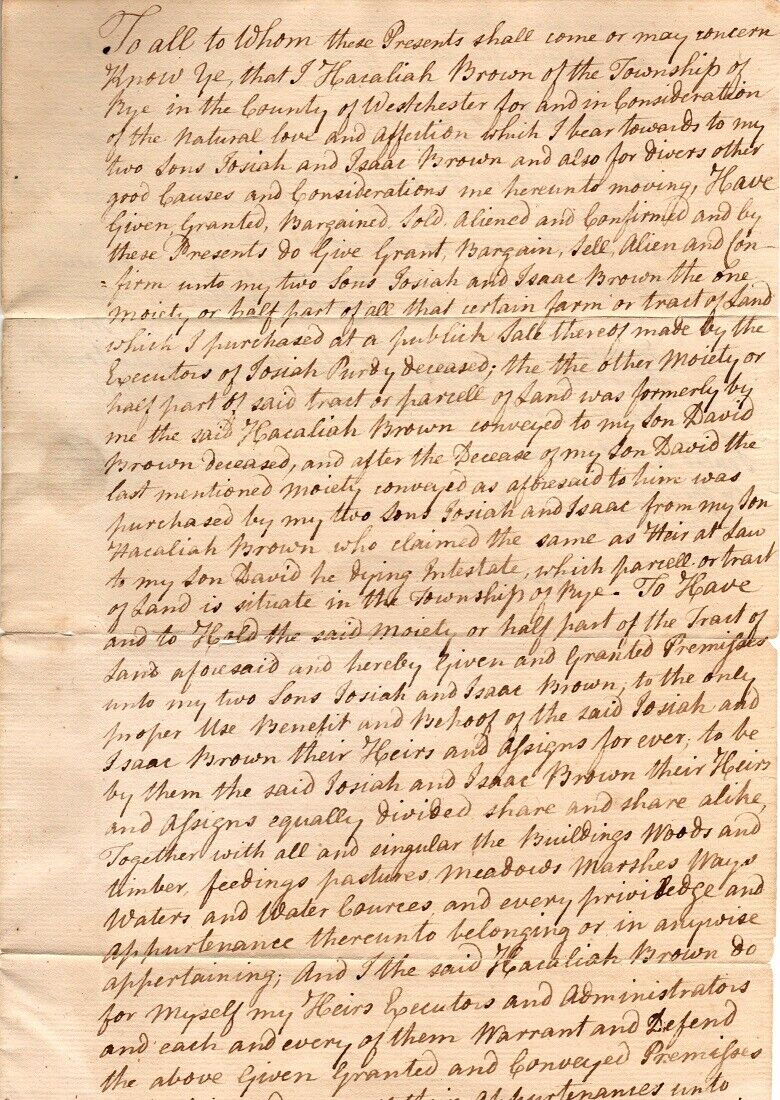 To all to Whom these Presents shall come or may concern
Know Ye, that I Hacaliah Brown of the Township of
Rye in the County of Westchester for and in Consideration
of the Natural love and affection which I bear towards to my
two Sons Josiah and Isaac Brown and also for divers other
good Causes and Considerations me hereunto moving, Have
Given, Granted, Bargained, Sold, Aliened and Confirmed and by
these Presents do Give Grant, Bargain, Sell, Alien and Con-
-firm unto my two Sons Josiah and Isaac Brown the one
moiety or half part of all that certain farm or tract of Land
which I purchased at a publick Sale thereof made by the
Executors of Josiah Purdy deceased; the the other Moiety or
half part of said tract or parcell of Land was formerly by
me the said Hacaliah Brown conveyed to my Son David
Brown deceased, and after the Decease of my Son David the
last mentioned Moiety conveyed as aforesaid to him was
purchased by my two Sons Josiah and Isaac from my Son
Hacaliah Brown who claimed the same as Heir at Law
to my Son David he dying Intestate, which parcell or tract
of Land is situate in the Township of Rye - To Have
and to Hold the said Moiety or half part of the Tract of
Land aforesaid and hereby Given and Granted Premisses
unto my two Sons Josiah and Isaac Brown, to the only
proper Use Benefit and Behoof of the said Josiah and
Isaac Brown their Heirs and Assigns for ever; to be
by them the said Josiah and Isaac Brown their Heirs
and Assigns equally divided share and share alike,
Together with all and singular the Buildings Woods and
timber, feedings pastures Meadows Marshes Ways
Waters and Water Cources and every priviledge and
appurtenance thereunto belonging or in anywise
appertaining; And I the said Hacaliah Brown do
for Myself my Heirs Executors and Administrators
and each and every of them Warrant and Defend
the above Given Granted and Conveyed Premisses
appurtenances unto